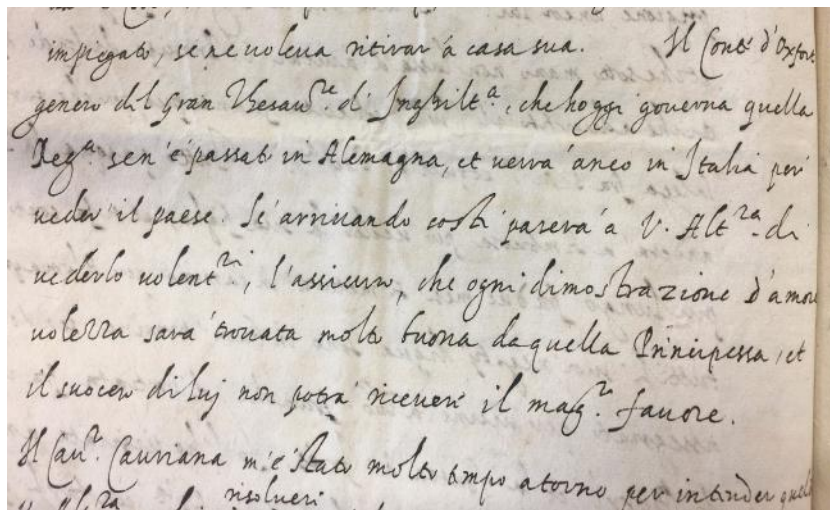 impiegato, se ne voleva ritirar' à casa sua. Il Conte d'Oxfort
genero del Gran Thesaur.re d'Inghilt.a, che hoggi governa quella
Reg.a sen'è passato in Alemagna, et verrà anco in Italia per
veder il paese. Se arrivando costì parerà à V. Alt.za di
vederlo volent.ri, l'assicuro, che ogni dimostrazione d'amore
volezza sarà trovata molto buona da quella Principessa, et
il suocero di luj non potrà ricever' il mag.r favore.
Il Cav.r Cavriana m'è stato molto tempo atorno per intender
risolveri